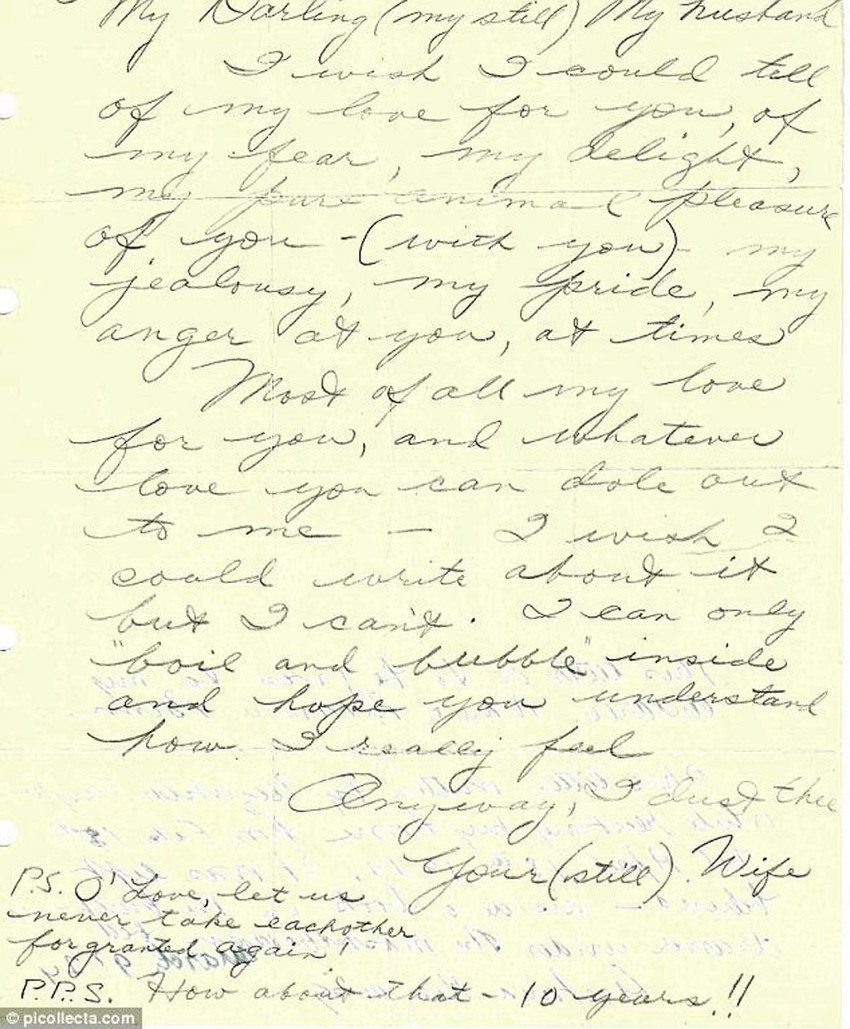 My Darling (my still) My husband
I wish I could tell
of my love for you, of
my fear, my delight,
my pure animal pleasure
of you - (with you) - my
jealousy, my pride, my
anger at you, at times
Most of all my love
for you, and whatever
love you can dole out
to me — I wish I
could write about it
but I can't. I can only
"boil and bubble" inside
and hope you understand
how I really feel
Anyway, I lust thee
Your (still) Wife
P.S. O'Love, let us
never take eachother
for granted again!
P.P.S. How about that - 10 years!!
© picollecta.com